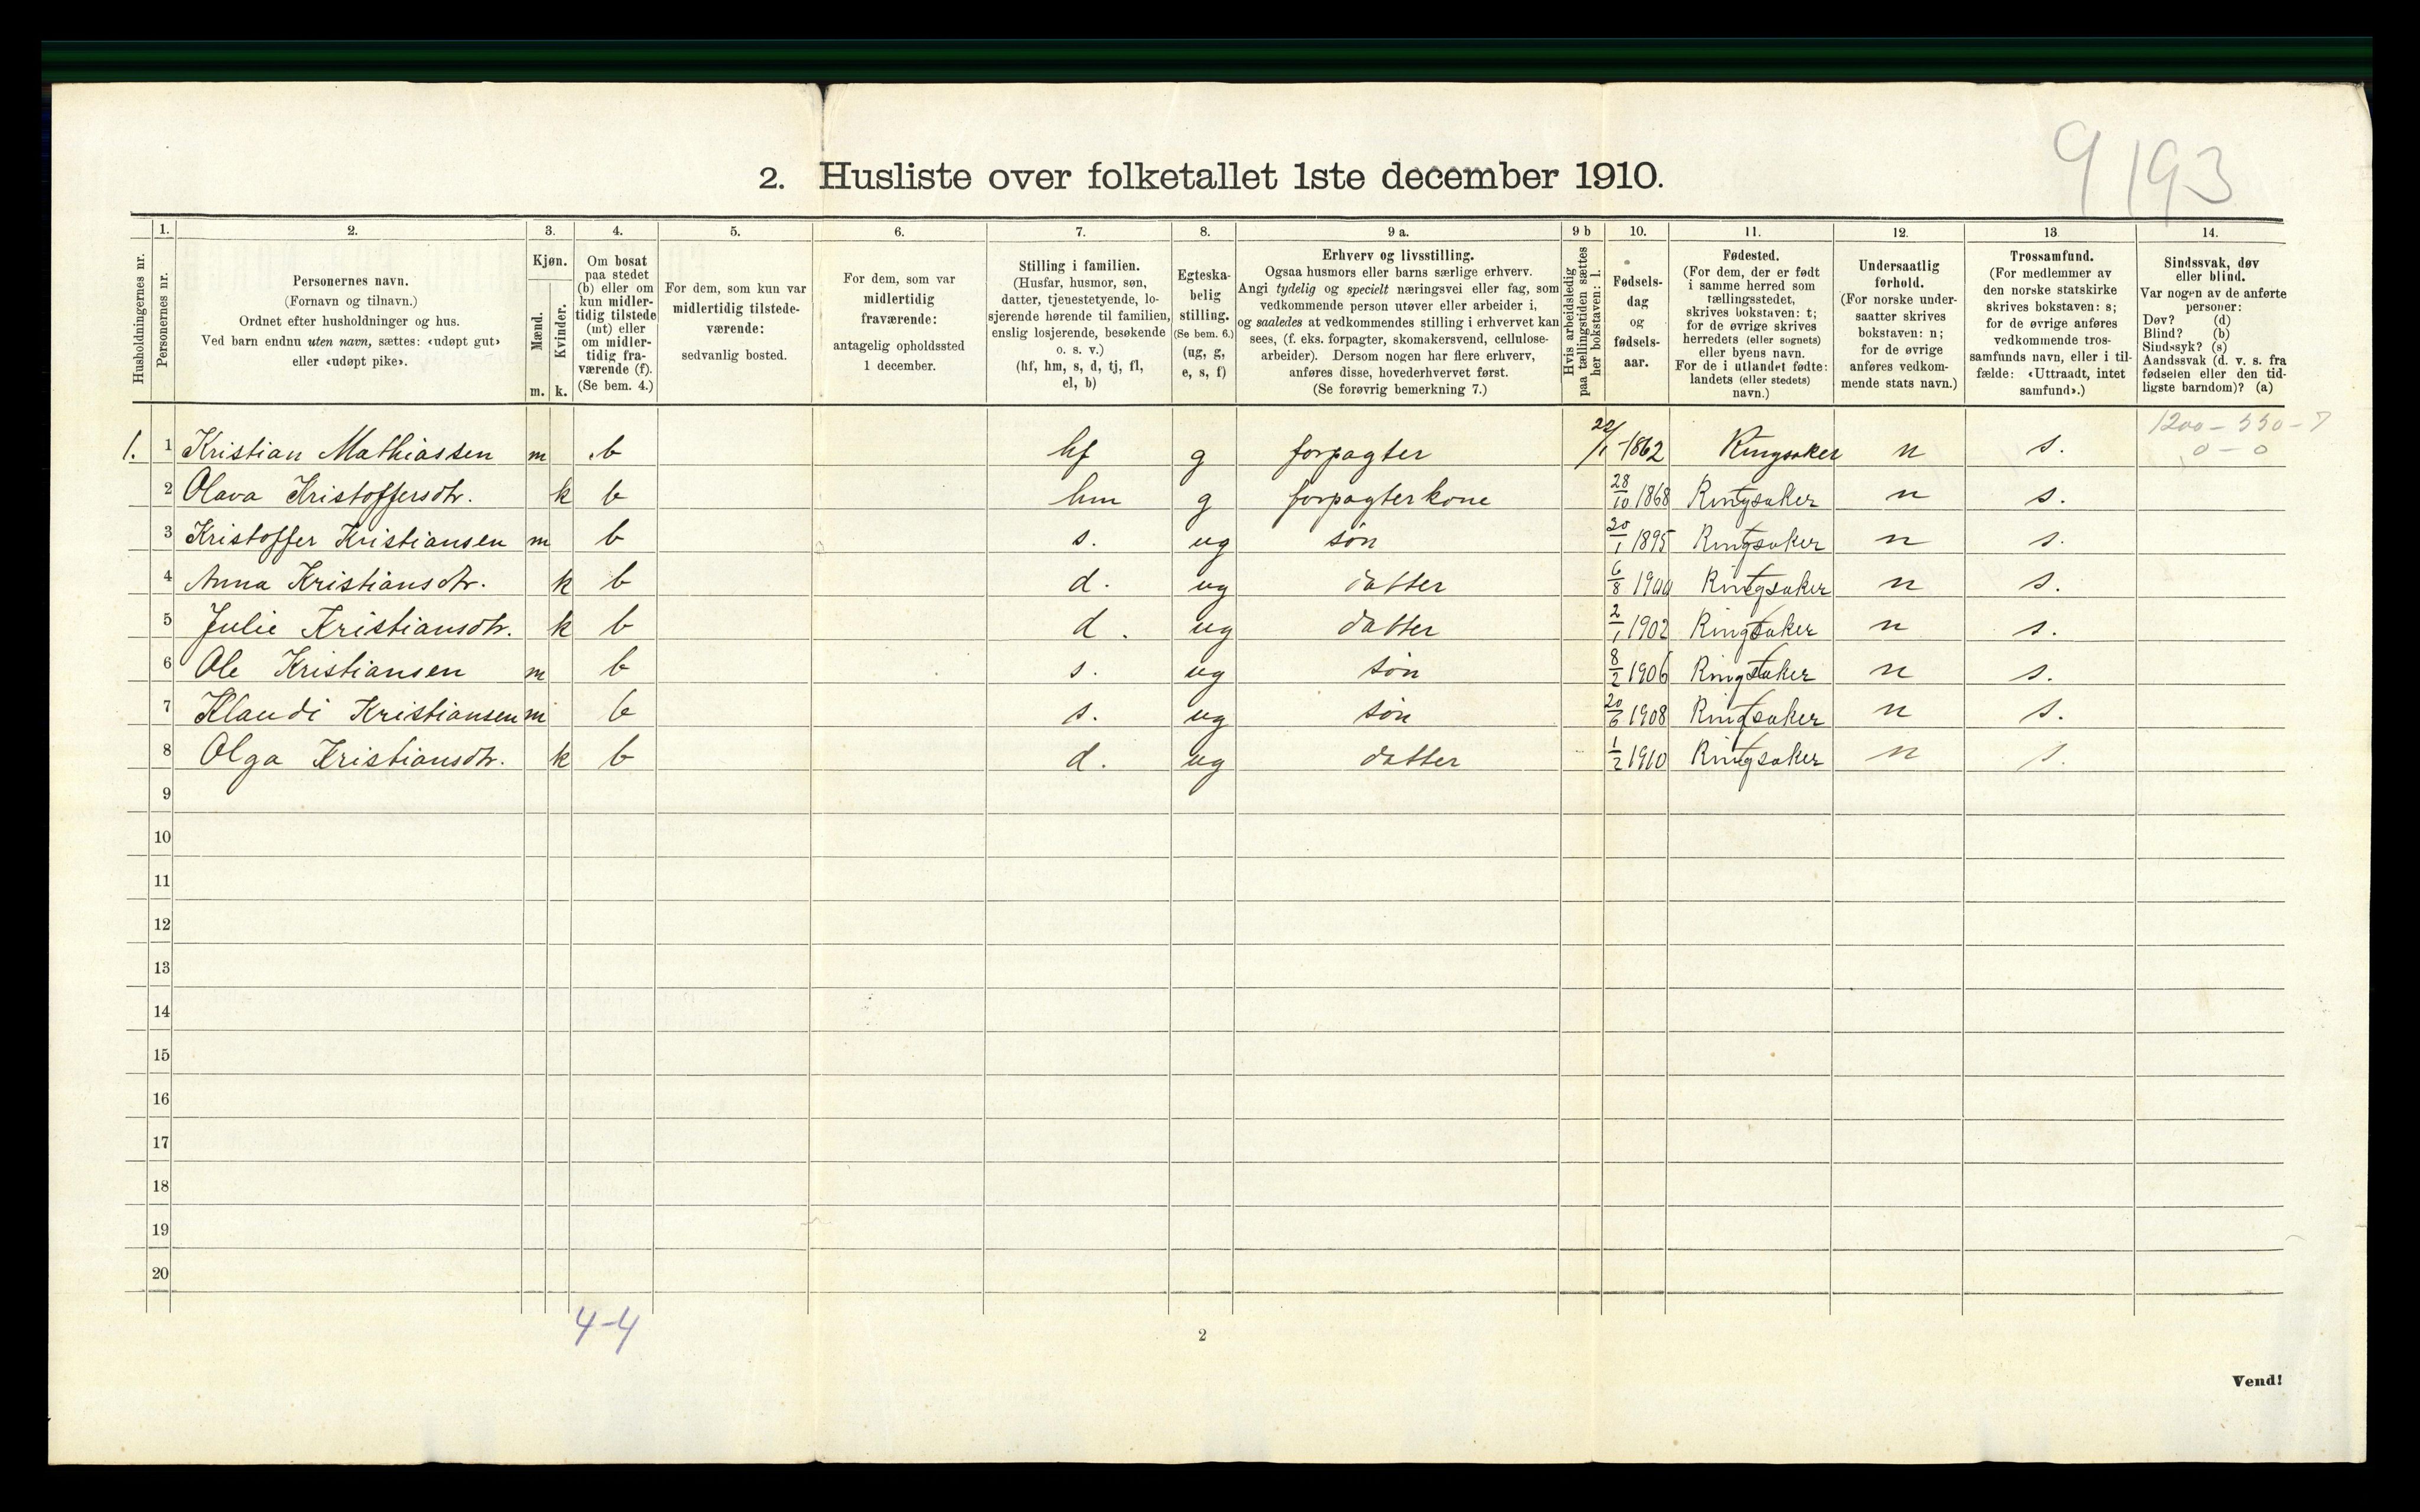 9 193
2. Husliste over folketallet 1ste december 1910.
1. 2. 3. 4. 5. 6. 7. 8. 9 a. 9 b 10. 11. 12. 13. 14.
Husholdningernes nr.
Personernes nr.
Personernes navn.
(Fornavn og tilnavn.)
Ordnet efter husholdninger og hus.
Ved barn endnu uten navn, sættes: «udøpt gut»
eller «udøpt pike».
Kjøn.
Mænd.
Kvinder.
m. k.
Om bosat
paa stedet
(b) eller om
kun midler-
tidig tilstede
(mt) eller
om midler-
tidig fra-
værende (f).
(Se bem. 4.)
For dem, som kun var
midlertidig tilstede-
værende:
sedvanlig bosted.
For dem, som var
midlertidig
fraværende:
antagelig opholdssted
1 december.
Stilling i familien.
(Husfar, husmor, søn,
datter, tjenestetyende, lo-
sjerende hørende til familien,
enslig losjerende, besøkende
o. s. v.)
(hf, hm, s, d, tj, fl,
el, b)
Egteska-
belig
stilling.
(Se bem. 6.)
(ug, g,
e, s, f)
Erhverv og livsstilling.
Ogsaa husmors eller barns særlige erhverv.
Angi tydelig og specielt næringsvei eller fag, som
vedkommende person utøver eller arbeider i,
og saaledes at vedkommendes stilling i erhvervet kan
sees, (f. eks. forpagter, skomakersvend, cellulose-
arbeider). Dersom nogen har flere erhverv,
anføres disse, hovederhvervet først.
(Se forøvrig bemerkning 7.)
Hvis arbeidsledig
paa tællingstiden sættes
her bokstaven: l.
Fødsels-
dag
og
fødsels-
aar.
Fødested.
(For dem, der er født
i samme herred som
tællingsstedet,
skrives bokstaven: t;
for de øvrige skrives
herredets (eller sognets)
eller byens navn.
For de i utlandet fødte:
landets (eller stedets)
navn.)
Undersaatlig
forhold.
(For norske under-
saatter skrives
bokstaven: n;
for de øvrige
anføres vedkom-
mende stats navn.)
Trossamfund.
(For medlemmer av
den norske statskirke
skrives bokstaven: s;
for de øvrige anføres
vedkommende tros-
samfunds navn, eller i til-
fælde: «Uttraadt, intet
samfund».)
Sindssvak, døv
eller blind.
Var nogen av de anførte
personer:
Døv? (d)
Blind? (b)
Sindssyk? (s)
Aandssvak (d. v. s. fra
fødselen eller den tid-
ligste barndom)? (a)
1200 – 550 – 7
0 – 0
1. 1 Kristian Mathiassen m b hf g forpagter 22/1 -1862 Ringsaker n s.
2 Olava Kristoffersdtr. k b hm g forpagterkone 28/10 1868 Ringsaker t n s.
3 Kristoffer Kristiansen m b s. ug søn 20/1 1895 Ringsaker t n s.
4 Anna Kristiansdtr. k b d. ug datter 6/8 1900 Ringsaker t n s.
5 Julie Kristiansdtr. k b d. ug datter 2/1 1902 Ringsaker t n s.
6 Ole Kristiansen m b s. ug søn 8/2 1906 Ringsaker t n s.
7 Klaudi Kristiansen m b s. ug søn 20/6 1908 Ringsaker t n s.
8 Olga Kristiansdtr. k b d. ug datter 1/2 1910 Ringsaker t n s.
9
10
11
12
13
14
15
16
17
18
19
20
4-4
2
Vend!